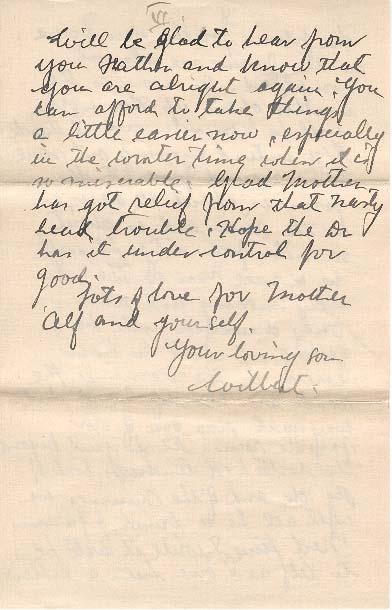 VI
Will be glad to hear from
you Father and know that
you are alright again. You
can afford to take things
a little easier now, especially
in the winter time when it is
so miserable. Glad Mother
has got relief from that nasty
head trouble. Hope the Dr
has it under control for
good.
Lots of love for Mother
Alf and yourself.
Your loving son
Wilbert.